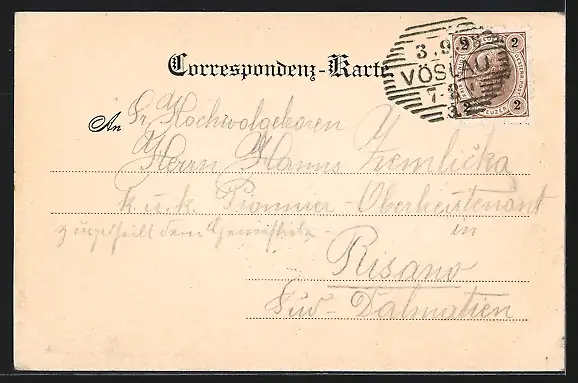 Correspondenz-Karte
3.9.98
VÖSLAU
2 2
2 2
An Sr. Hochwolgeboren
Herrn Hanns Zemlička
k. u. k. Pionnier-Oberlieutenant
zugetheilt dem in
Risano
Süd-Dalmatien